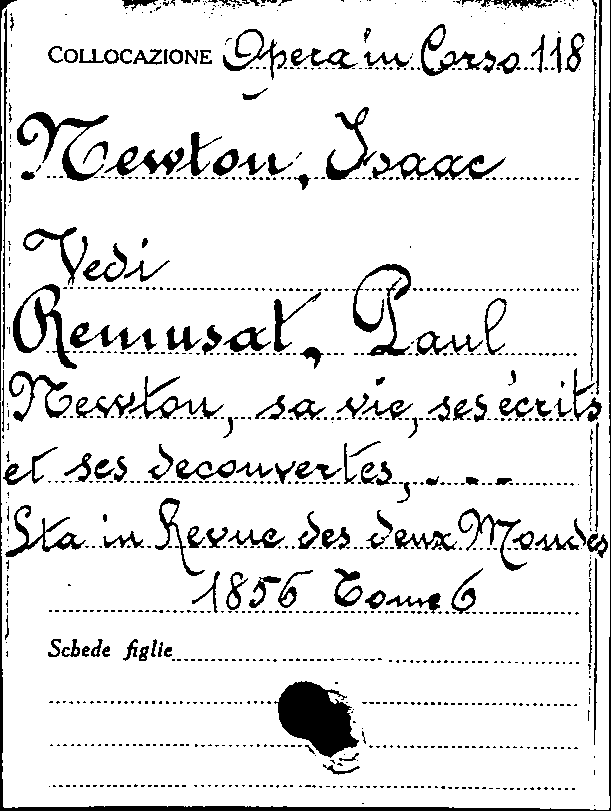 COLLOCAZIONE Opera in Corso 118
Newton, Isaac
Vedi
Remusat, Paul
Newton, sa vie, ses écrits
et ses decouvertes, . - -
Sta in Revue des deux Mondes
1856 Tome 6
Schede figlie